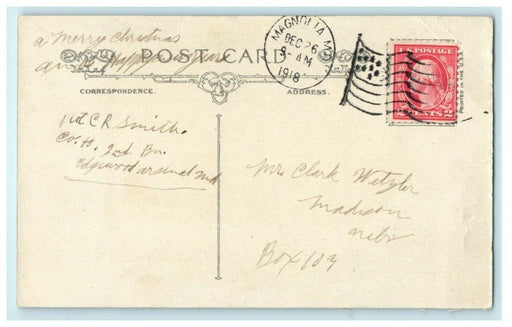 a Merry Christmas
and a Happy new year
POST CARD
CORRESPONDENCE.
ADDRESS.
MAGNOLIA, MD.
DEC 26
9- AM
1918
U.S. POSTAGE
2 CENTS 2
C R Smith.
Co. H. 2nd Bn.
Edgewood arsenal Md
Mr Clark Wetzler
Madison
Nebr
Box 103